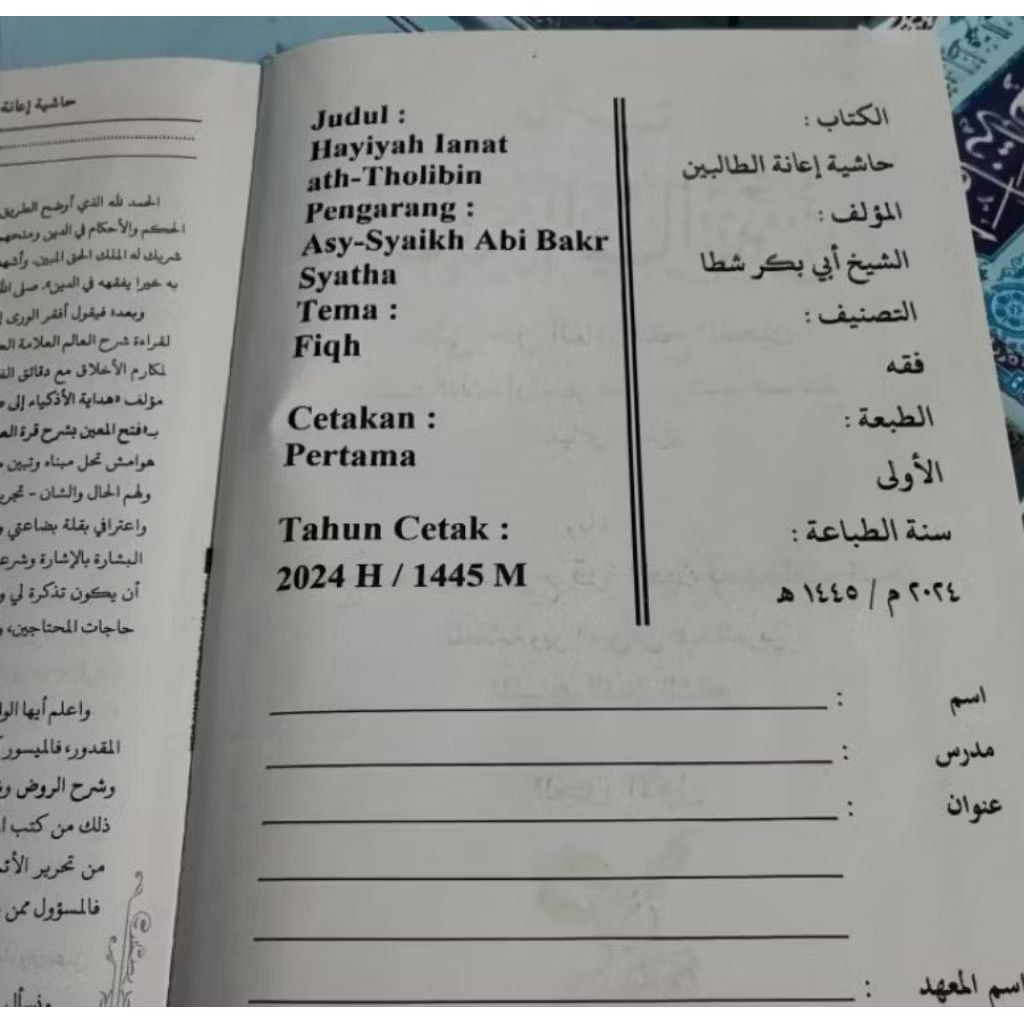 حاشية إعانة
الحمد لله الذي أوضح الطريق
الحكم والأحكام في الدين ومنحهم
شريك له الملك الحق المبين، وأشهد
به خيرا يفقهه في الدين». صلى الله
وبعد» فيقول أفقر الورى
لقراءة شرح العالم العلامة
لمكارم الأخلاق مع دقائق
مؤلف «هداية الأذكياء إلى
بـ«فتح المعين بشرح قرة
هوامش تحل مبناه وتبين
ولهم الحال والشان - تجري
واعترافي بقلة بضاعتي
البشارة بالإشارة وشرع
أن يكون تذكرة لي
حاجات المحتاجين،
واعلم أيها
المقدور، فالميسور
وشرح الروض
ذلك من كتب
من تحرير
فالمسؤول ممن
ونسأل
Judul :
Hayiyah Ianat
ath-Tholibin
Pengarang :
Asy-Syaikh Abi Bakr
Syatha
Tema :
Fiqh
Cetakan :
Pertama
Tahun Cetak :
2024 H / 1445 M
الكتاب :
حاشية إعانة الطالبين
المؤلف :
الشيخ أبي بكر شطا
التصنيف :
فقه
الطبعة :
الأولى
سنة الطباعة :
٢٠٢٤ م / ١٤٤٥ هـ
اسم :
مدرس :
عنوان :
اسم المعهد :